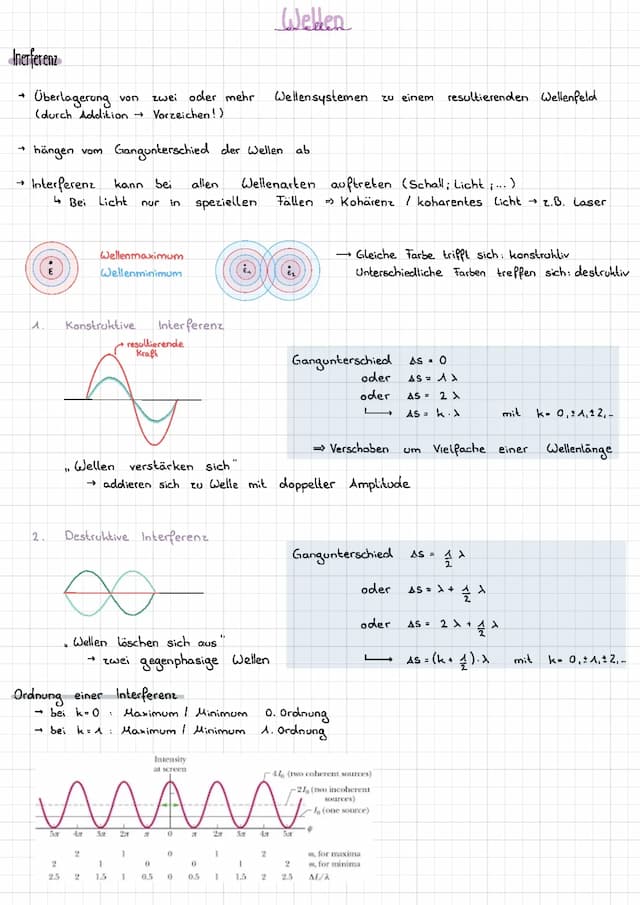 Wellen
Inerferenz
→ Überlagerung von zwei oder mehr Wellensystemen zu einem resultierenden Wellenfeld
(durch Addition → Vorzeichen!)
→ hängen vom Gangunterschied der Wellen ab
→ Interferenz kann bei allen Wellenarten auftreten (Schall; Licht ; ...)
↳ Bei Licht nur in speziellen Fällen ⇒ Kohäienz / koharentes Licht → z.B. Laser
E
Wellenmaximum
Wellenminimum
E₁ E₂
→ Gleiche Farbe trifft sich: konstruktiv
Unterschiedliche Farben treffen sich: destruktiv
1. Konstruktive Interferenz
resultierende
Kraft
Gangunterschied ΔS = 0
oder ΔS = 1 λ
oder ΔS = 2 λ
↳ ΔS = k · λ mit k = 0, ±1, ±2, ...
⇒ Verschoben um Vielfache einer Wellenlänge
„Wellen verstärken sich"
→ addieren sich zu Welle mit doppelter Amplitude
2. Destruktive Interferenz
Gangunterschied ΔS = 1/2 λ
oder ΔS = λ + 1/2 λ
oder ΔS = 2 λ + 1/2 λ
↳ ΔS = (k + 1/2) · λ mit k = 0, ±1, ±2, ...
„Wellen löschen sich aus"
→ zwei gegenphasige Wellen
Ordnung einer Interferenz
→ bei k=0 : Maximum / Minimum 0. Ordnung
→ bei k=1 : Maximum / Minimum 1. Ordnung
Intensity
at screen
4I₀ (two coherent sources)
2I₀ (two incoherent
sources)
I₀ (one source)
5π 4π 3π 2π π 0 π 2π 3π 4π 5π φ
2 1 0 1 2 m, for maxima
2 1 0 0 1 2 m, for minima
2.5 2 1.5 1 0.5 0 0.5 1 1.5 2 2.5 ΔL/λ